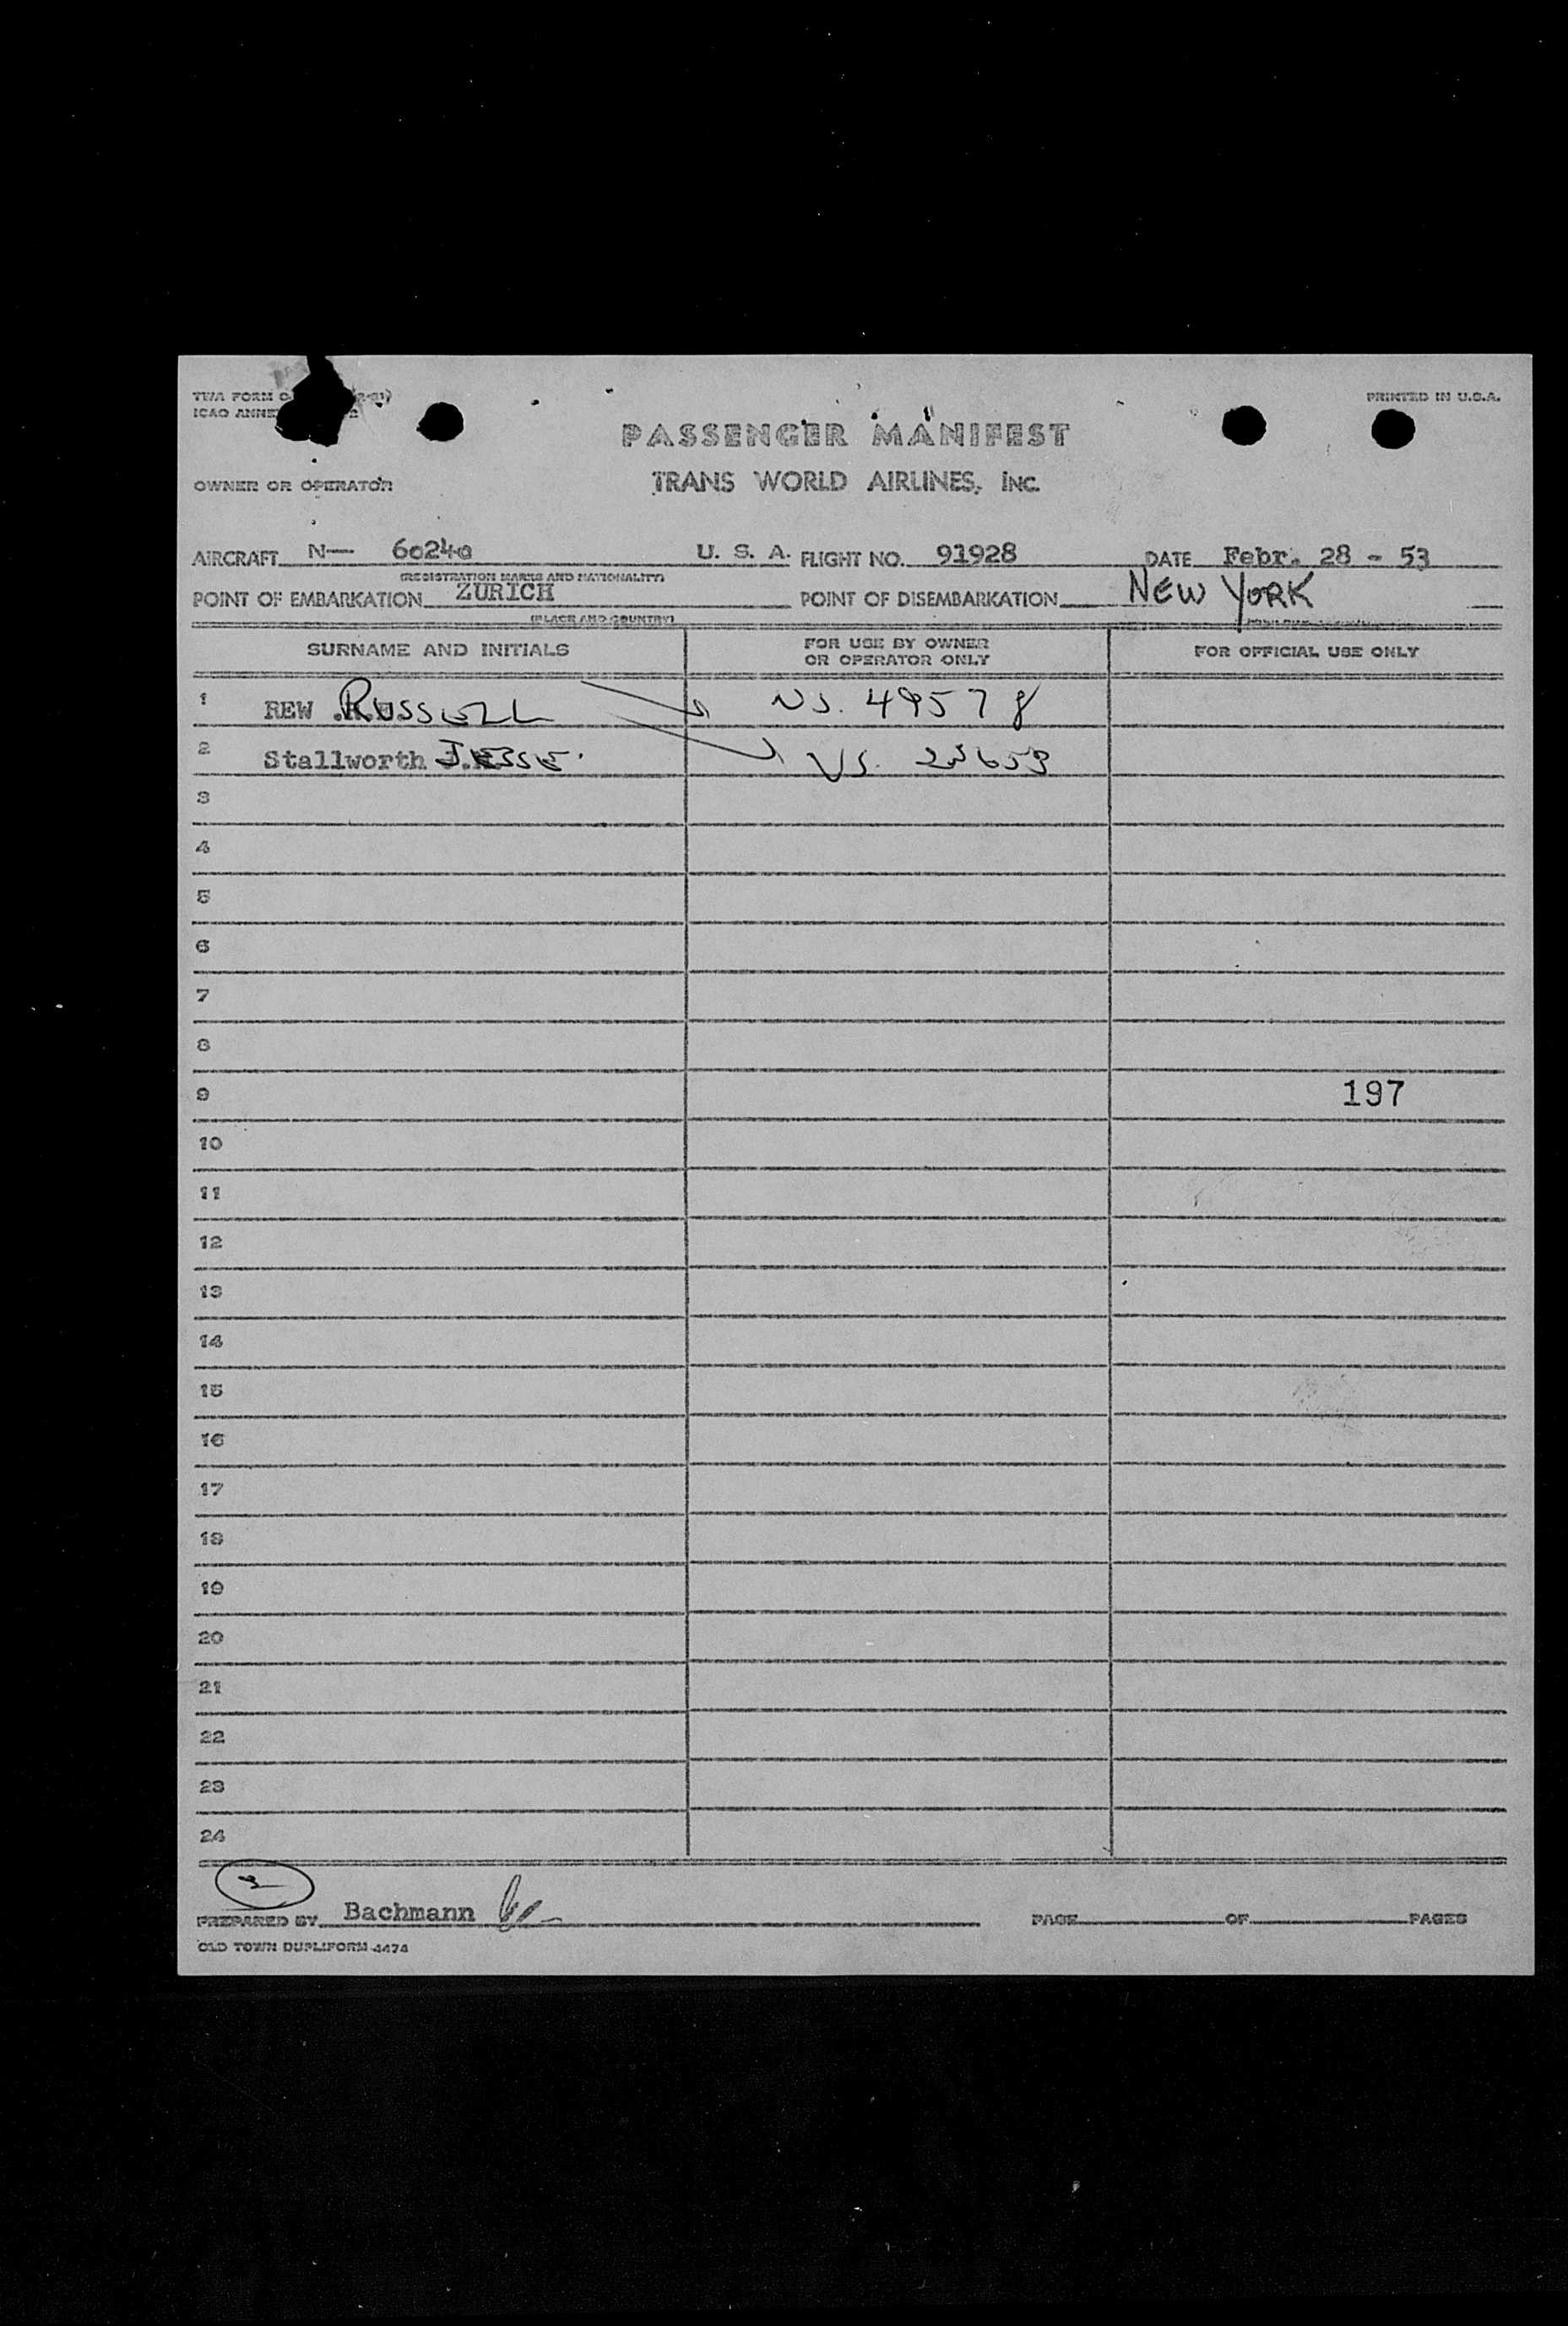 TWA FORM
ICAO ANNEX
PRINTED IN U.S.A.
PASSENGER MANIFEST
OWNER OR OPERATOR
TRANS WORLD AIRLINES, INC.
AIRCRAFT N— 6024 U. S. A. FLIGHT NO. 91928 DATE Febr. 28 - 53
(REGISTRATION MARKS AND NATIONALITY)
POINT OF EMBARKATION ZURICH POINT OF DISEMBARKATION NEW YORK
(PLACE AND COUNTRY)
SURNAME AND INITIALS FOR USE BY OWNER OR OPERATOR ONLY FOR OFFICIAL USE ONLY
1 REW RUSSELL 49578
2 Stallworth JESSE.
3
4
5
6
7
8
9 197
10
11
12
13
14
15
16
17
18
19
20
21
22
23
24
PREPARED BY Bachmann PAGE OF PAGES
OLD TOWN DUPLIFORM 4474